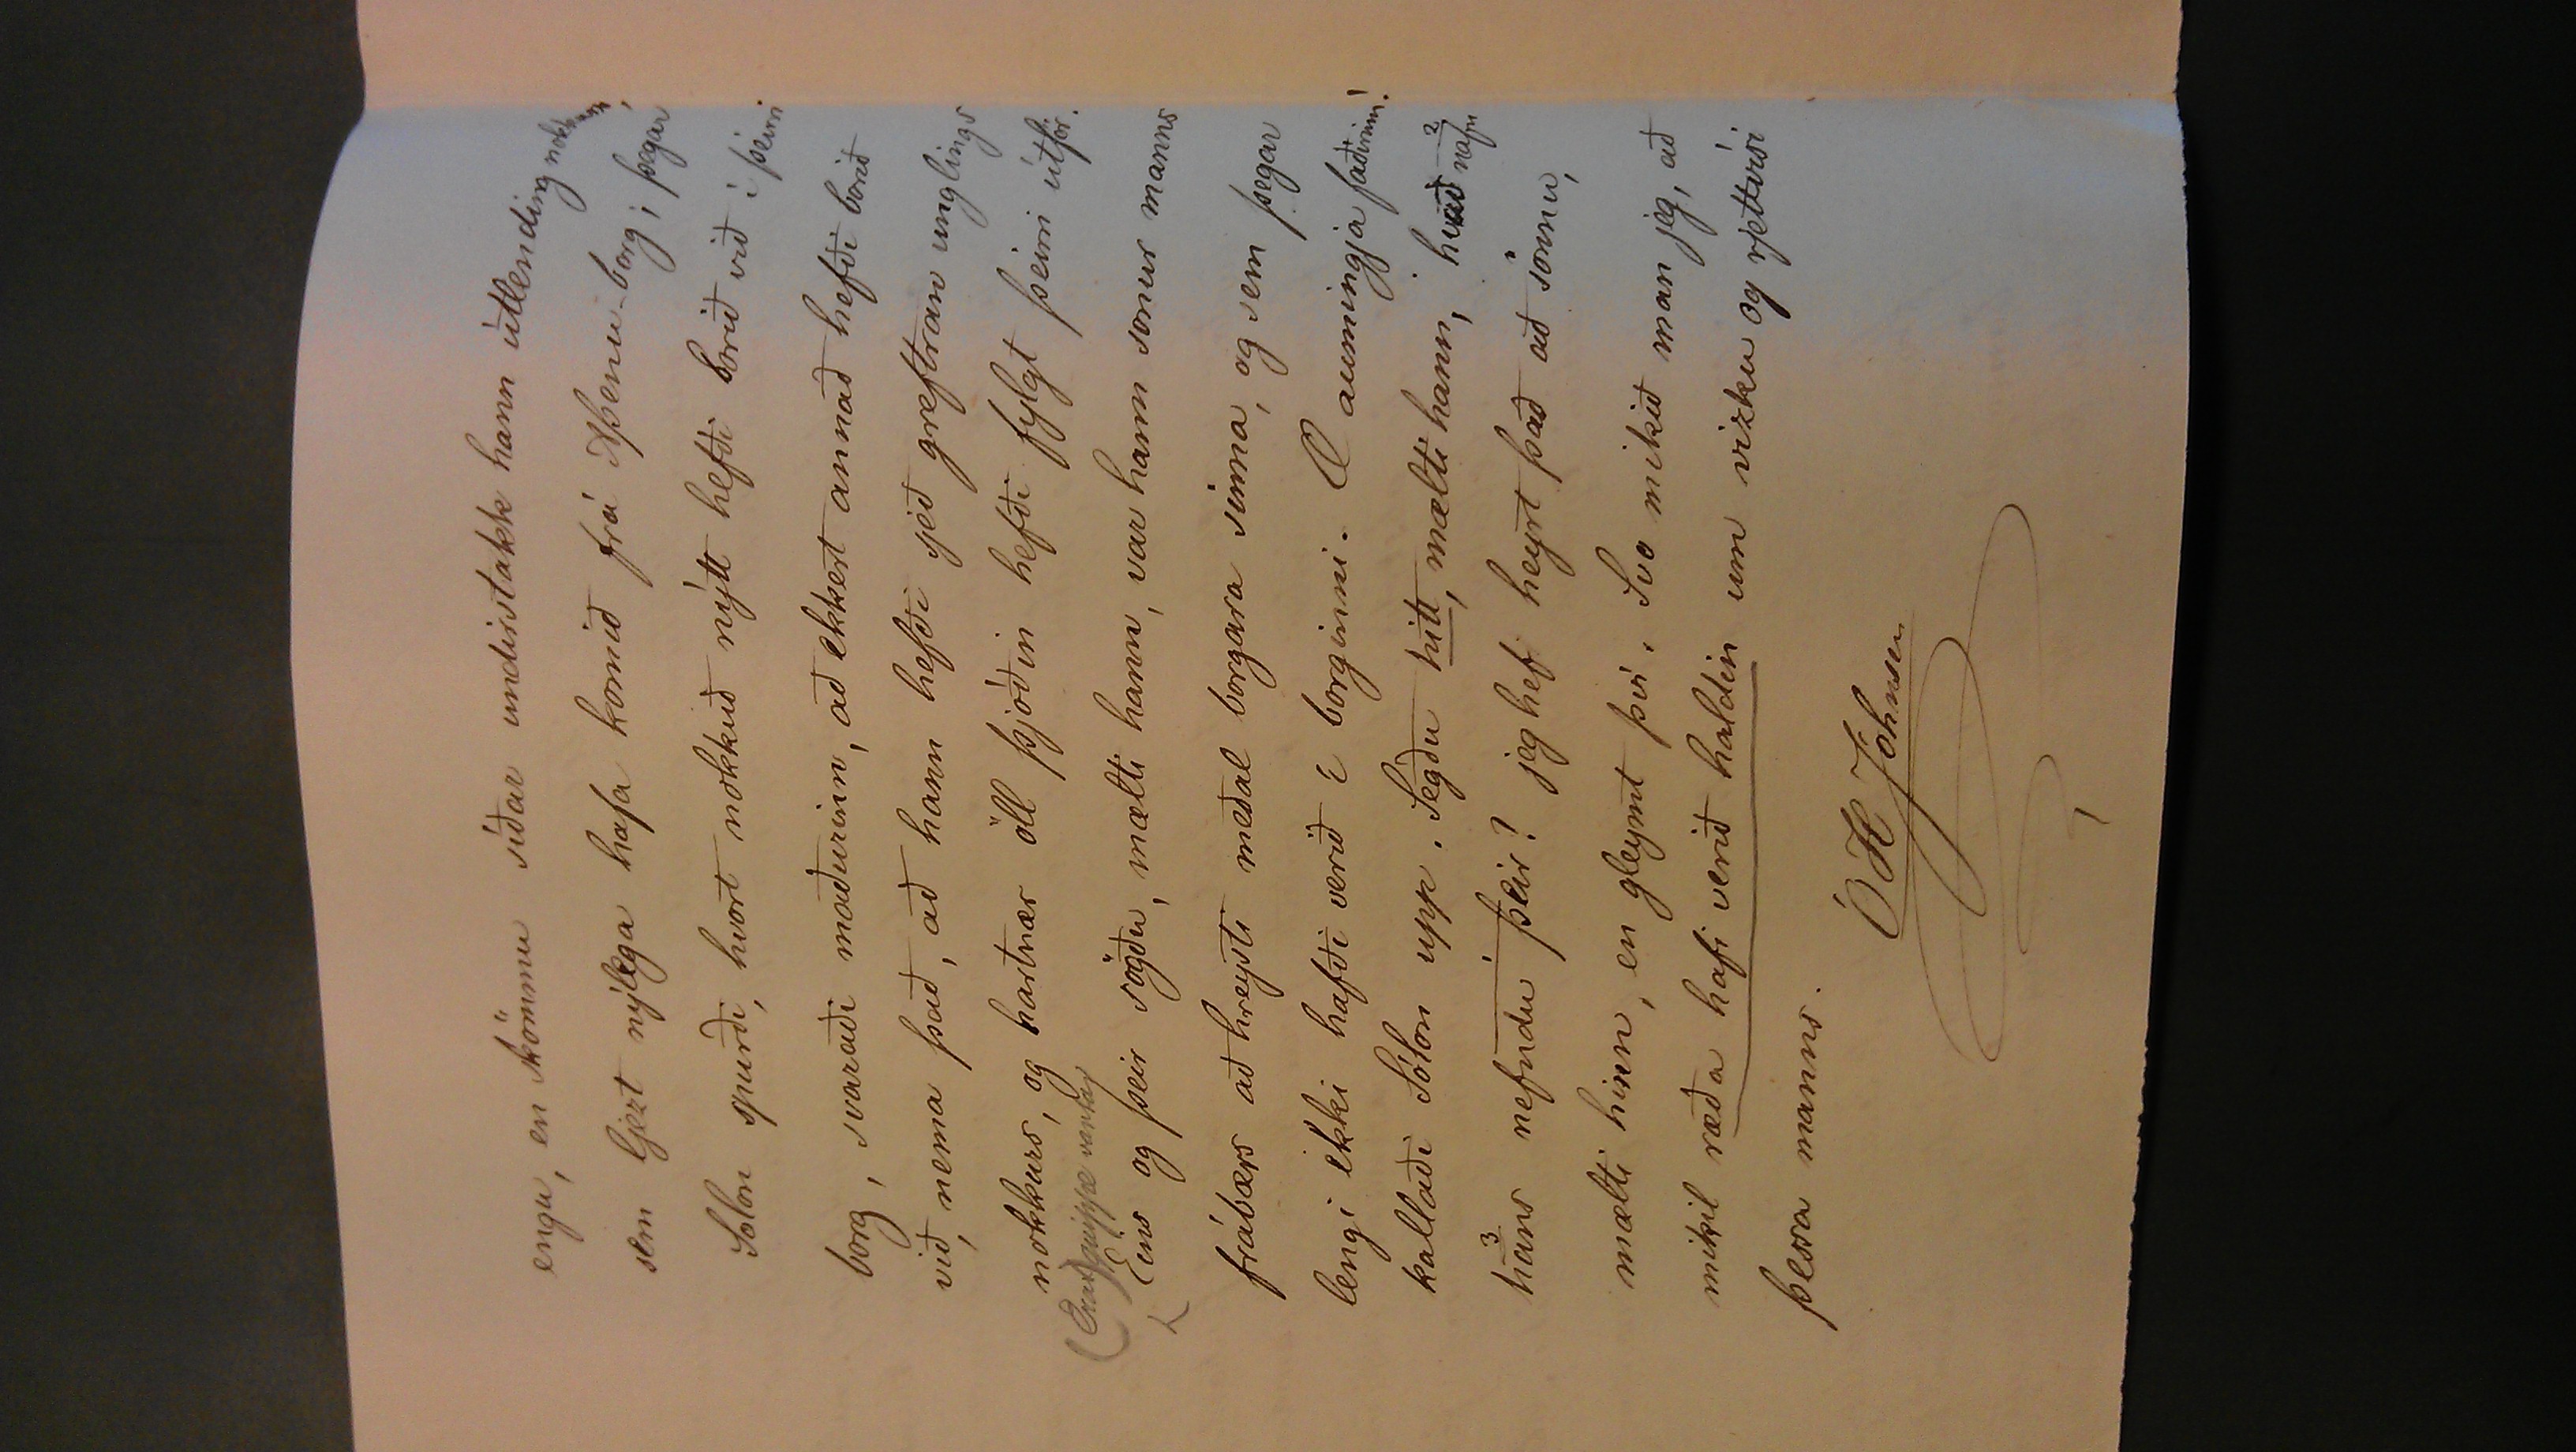 engu, en skömmu síðar undirstakk hann útlending nokkurn,
sem ljezt nýlega hafa komið frá Aþenu-borg; þegar
Solon spurði, hvort nokkuð nýtt hefði borið við í þeirri
borg, svaraði maðurinn, að ekkert annað hefði borið
við, nema það, að hann hefði sjeð greftran unglings
nokkurs, og hartnær öll þjóðin hefði fylgt þeirri útför.
vantar)
Eins og þeir sögðu, mælti hann, var hann sonur manns
frábærs að hreysti meðal borgara sinna, og sem þegar
lengi ekki hafði verið í borginni. O aumingja faðirinn!
kallaði Sólon upp. Segðu hitt, mælti hann, hvað nafn 2
hans 3 nefndu þeir? jeg hef heyrt það að sönnu,
mælti hinn, en gleymt því. Svo mikið man jeg, að
mikil ræða hafi verið haldin um vizku og rjettvísi
þessa manns.
Ó H Johnsen